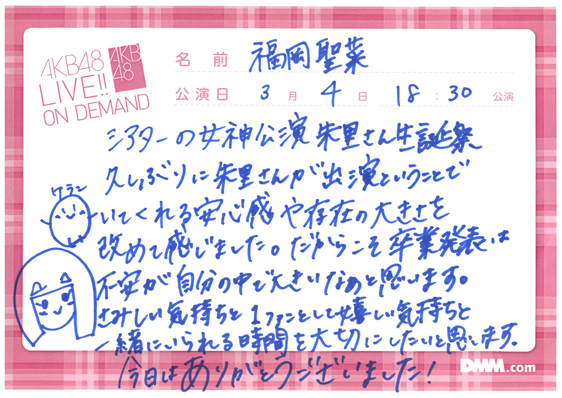 AKB48
LIVE!!
ON DEMAND
AKB
48
名前 福岡聖菜
公演日 3月4日 18:30公演
シアターの女神公演 朱里さん生誕祭
久しぶりに朱里さんが出演ということで
いてくれる安心感や存在の大きさを
改めて感じました。だからこそ卒業発表は
不安が自分の中で大きいなぁと思います。
さみしい気持ちと1ファンとして嬉しい気持ちと
一緒にいられる時間を大切にしたいと思います。
今日はありがとうございました!
ケラン
DMM.com